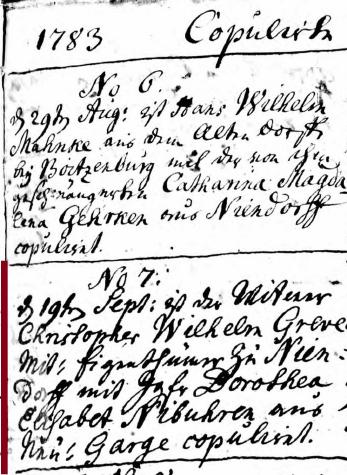 1783 Copulirte
No 6.
d 29ten Aug: ist Hans Wilhelm
Mahncke aus dem Alten Dorffe
bey Boitzenburg mit der von ihm
geschwängerten Catharina Magda
lena Gehrken aus Niendorff
copulirt.
No 7:
d 19ten Sept: ist der Witwer
Christopher Wilhelm Greve
Mit: Eigenthümer zu Nien-
dorff mit Jgfr Dorothea
Elisabet Nibuhren aus
Neu: Garge copulirt.